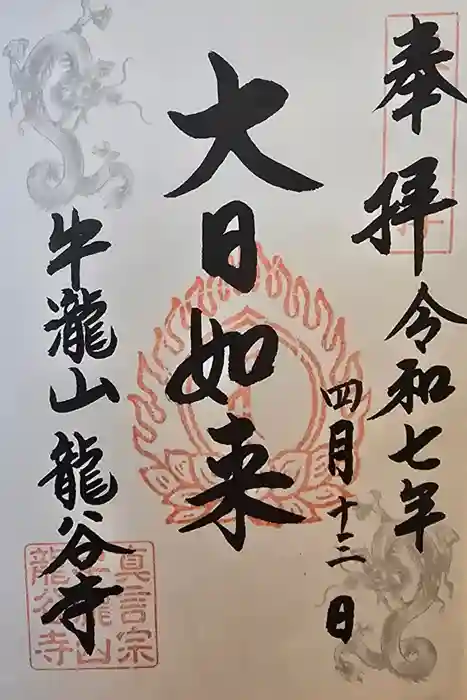 奉拝
令和七年
四月十三日
大日如来
牛瀧山 龍谷寺
真言宗
牛瀧山
龍谷寺